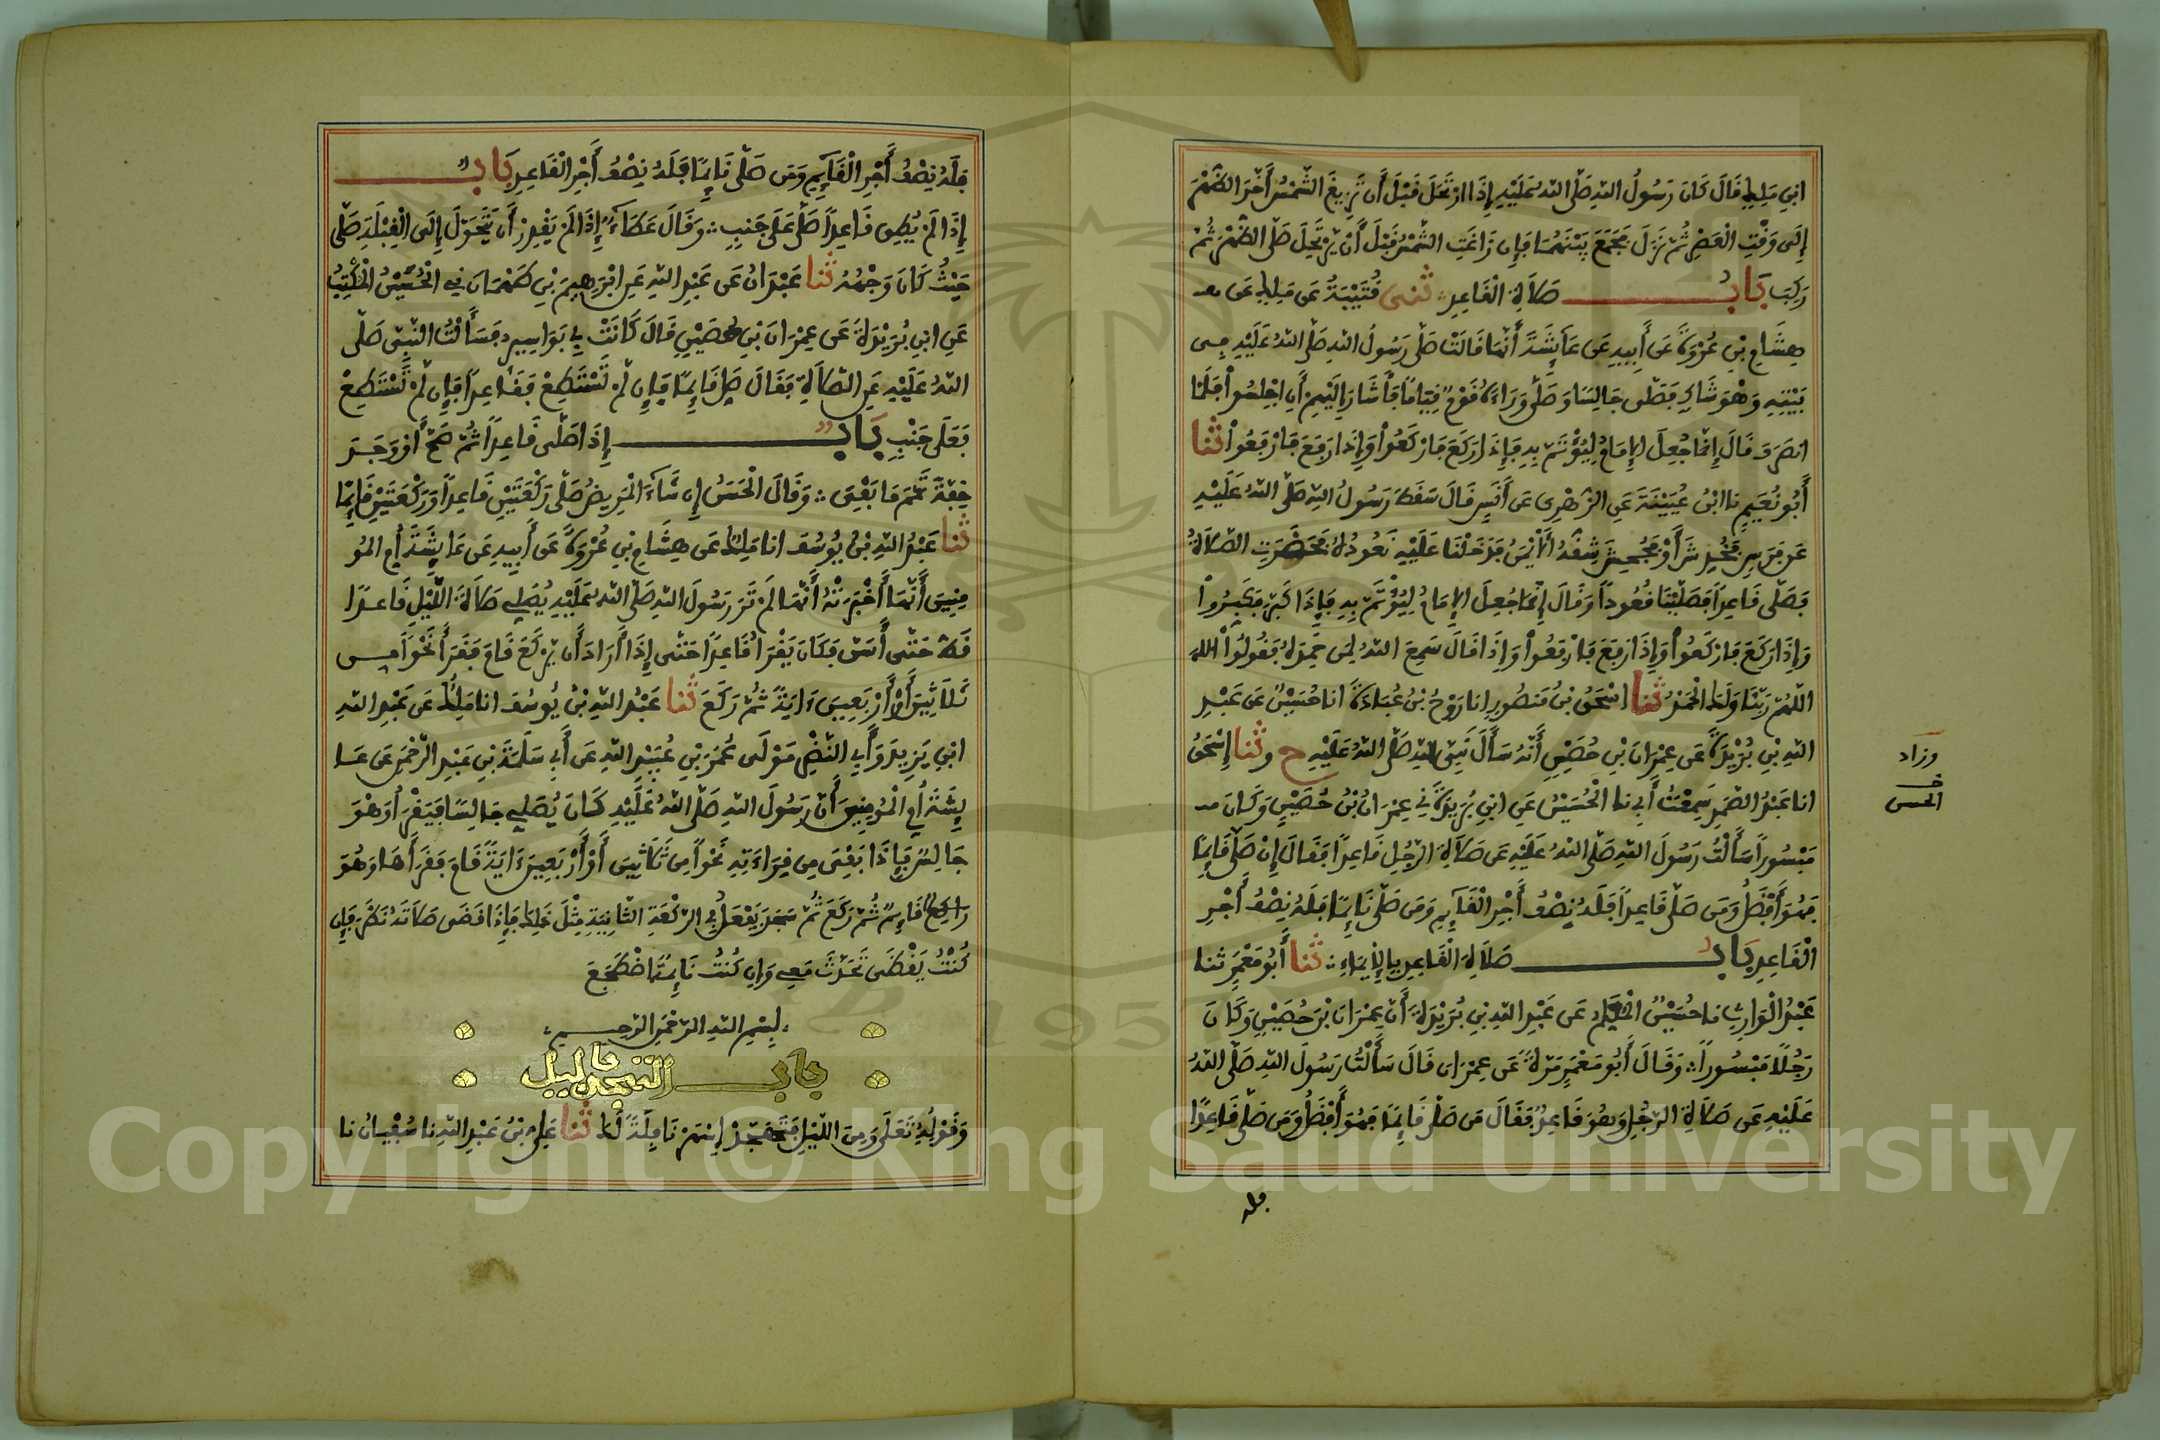 ابْنِ مَلِكٍ قَالَ كَانَ رَسُولُ اللهِ صَلَّى اللهُ عَلَيْهِ إِذَا ارْتَحَلَ قَبْلَ أَنْ تَزِيغَ الشَّمْسُ أَخَّرَ الظُّهْرَ
إِلَى وَقْتِ الْعَصْرِ ثُمَّ نَزَلَ فَجَمَعَ بَيْنَهُمَا فَإِن زَاغَتِ الشَّمْسُ قَبْلَ أَنْ يَرْتَحِلَ صَلَّى الظُّهْرَ ثُمَّ
رَكِبَ بَابُ صَلَاةِ الْقَاعِدِ ثنى قُتَيْبَةُ عَن مَلِكٍ عَن
هِشَامِ بْنِ عُرْوَةَ عَن أَبِيهِ عَن عَائِشَةَ أَنَّهَا قَالَتْ صَلَّى رَسُولُ اللهِ صَلَّى اللهُ عَلَيْهِ فِى
بَيْتِهِ وَهْوَ شَاكٍ فَصَلَّى جَالِسًا وَصَلَّى وَرَاءَهُ قَوْمٌ قِيَامًا فَأَشَارَ إِلَيْهِمْ أَنِ اجْلِسُوا فَلَمَّا
انصَرَفَ قَالَ إِنَّمَا جُعِلَ الإِمَامُ لِيُؤْتَمَّ بِهِ فَإِذَا رَكَعَ فَارْكَعُوا وَإِذَا رَفَعَ فَارْفَعُوا ثنا
أَبُو نُعَيْمٍ نا ابْنُ عُيَيْنَةَ عَنِ الزُّهْرِى عَن أَنَسٍ قَالَ سَقَطَ رَسُولُ اللهِ صَلَّى اللهُ عَلَيْهِ
عَن فَرَسٍ فَخُدِشَ أَوْ فَجُحِشَ شِقُّهُ الأَيْمَنُ فَدَخَلْنَا عَلَيْهِ نَعُودُهُ فَحَضَرَتِ الصَّلَاةُ
فَصَلَّى قَاعِدًا فَصَلَّيْنَا قُعُودًا وَقَالَ إِنَّمَا جُعِلَ الإِمَامُ لِيُؤْتَمَّ بِهِ فَإِذَا كَبَّرَ فَكَبِّرُوا
وَإِذَا رَكَعَ فَارْكَعُوا وَإِذَا رَفَعَ فَارْفَعُوا وَإِذَا قَالَ سَمِعَ اللهُ لِمَن حَمِدَهُ فَقُولُوا
اللَّهُمَّ رَبَّنَا وَلَكَ الْحَمْدُ ثنا اسْحَقُ بْنُ مَنصُورٍ انا رَوْحُ بْنُ عُبَادَةَ انا حُسَيْنٌ عَن عَبْدِ
اللهِ بْنِ بُرَيْدَةَ عَن عِمْرَانَ بْنِ حُصَيْنٍ أَنَّهُ سَأَلَ نَبِيَّ اللهِ صَلَّى اللهُ عَلَيْهِ ح وثنا إِسْحَقُ
انا عَبْدُ الصَّمَدِ سَمِعْتُ أَبِي نا الْحُسَيْنُ عَنِ ابْنِ بُرَيْدَةَ نِي عِمْرَانُ بْنُ حُصَيْنٍ وَكَانَ
مَبْسُورًا سَأَلْتُ رَسُولَ اللهِ صَلَّى اللهُ عَلَيْهِ عَن صَلَاةِ الرَّجُلِ قَاعِدًا فَقَالَ إِنْ صَلَّى قَائِمًا
فَهُوَ أَفْضَلُ وَمَن صَلَّى قَاعِدًا فَلَهُ نِصْفُ أَجْرِ الْقَآئِمِ وَمَن صَلَّى نَائِمًا فَلَهُ نِصْفُ أَجْرِ
الْقَاعِدِ بَابُ صَلَاةِ الْقَاعِدِ بِالْإِيمَاءِ ثنا أَبُو مَعْمَرٍ ثنا
عَبْدُ الْوَارِثِ نا حُسَيْنٌ الْمُعَلِّمُ عَن عَبْدِ اللهِ بْنِ بُرَيْدَةَ أَنَّ عِمْرَانَ بْنَ حُصَيْنٍ وَكَانَ
رَجُلًا مَبْسُورًا وَقَالَ أَبُو مَعْمَرٍ مَرَّةً عَن عِمْرَان قَالَ سَأَلْتُ رَسُولَ اللهِ صَلَّى اللهُ
عَلَيْهِ عَن صَلَاةِ الرَّجُلِ وَهُوَ قَاعِدٌ فَقَالَ مَن صَلَّى قَائِمًا فَهُوَ أَفْضَلُ وَمَن صَلَّى قَاعِدًا
فله
وزاد
الحسن
فَلَهُ نِصْفُ أَجْرِ الْقَآئِمِ وَمَن صَلَّى نَائِمًا فَلَهُ نِصْفُ أَجْرِ الْقَاعِدِ بَابٌ
إِذَا لَمْ يُطِق قَاعِدًا صَلَّى عَلَى جَنبٍ وَقَالَ عَطَاءٌ إِذَا لَمْ يَقْدِرْ أَن يَتَحَوَّلَ إِلَى الْقِبْلَةِ صَلَّى
حَيْثُ كَانَ وَجْهُهُ ثنا عَبْدَانُ عَن عَبْدِ اللهِ عَنِ ابْرَهِيمَ بْنِ طَهْمَانَ نِي الْحُسَيْنُ الْمُكْتِبُ
عَنِ ابْنِ بُرَيْدَةَ عَن عِمْرَانَ بْنِ حُصَيْنٍ قَالَ كَانَتْ بِي بَوَاسِيرُ فَسَأَلْتُ النَّبِيَّ صَلَّى
اللهُ عَلَيْهِ عَنِ الصَّلَاةِ فَقَالَ صَلِّ قَائِمًا فَإِن لَّمْ تَسْتَطِعْ فَقَاعِدًا فَإِن لَّمْ تَسْتَطِعْ
فَعَلَى جَنْبٍ بَابٌ إِذَا صَلَّى قَاعِدًا ثُمَّ صَحَّ أَوْ وَجَدَ
خِفَّةً تَمَّمَ مَا بَقِيَ وَقَالَ الْحَسَنُ إِن شَاءَ الْمَرِيضُ صَلَّى رَكْعَتَيْنِ قَاعِدًا وَرَكْعَتَيْنِ قَائِمًا
ثنا عَبْدُ اللهِ بْنُ يُوسُفَ انا مَلِكٌ عَن هِشَامِ بْنِ عُرْوَةَ عَن أَبِيهِ عَن عَائِشَةَ أُمِّ الْمُو
مِنِينَ أَنَّهَا أَخْبَرَتْهُ أَنَّهَا لَمْ تَرَ رَسُولَ اللهِ صَلَّى اللهُ عَلَيْهِ يُصَلِّي صَلَاةَ اللَّيْلِ قَاعِدًا
قَطُّ حَتَّى أَسَنَّ فَكَانَ يَقْرَأُ قَاعِدًا حَتَّى إِذَا أَرَادَ أَن يَرْكَعَ قَامَ فَقَرَأَ نَحْوًا مِن
ثَلَاثِينَ أَوْ أَرْبَعِينَ ءَايَةً ثُمَّ رَكَعَ ثنا عَبْدُ اللهِ بْنُ يُوسُفَ انا مَلِكٌ عَن عَبْدِ اللهِ
ابْنِ يَزِيدَ وَأَبِي النَّضْرِ مَوْلَى عُمَرَ بْنِ عُبَيْدِ اللهِ عَن أَبِي سَلَمَةَ بْنِ عَبْدِ الرَّحْمَنِ عَن عَا
ئِشَةَ أُمِّ الْمُومِنِينَ أَنَّ رَسُولَ اللهِ صَلَّى اللهُ عَلَيْهِ كَانَ يُصَلِّي جَالِسًا فَيَقْرَأُ وَهْوَ
جَالِسٌ فَإِذَا بَقِيَ مِن قِرَاءَتِهِ نَحْوًا مِن ثَلَاثِينَ أَوْ أَرْبَعِينَ ءَايَةً قَامَ فَقَرَأَهَا وَهْوَ
قَائِمٌ ثُمَّ رَكَعَ ثُمَّ سَجَدَ يَفْعَلُ فِي الرَّكْعَةِ الثَّانِيَةِ مِثْلَ ذَلِكَ فَإِذَا قَضَى صَلَاتَهُ نَظَرَ فَإِن
كُنْتُ يَقْظَى تَحَدَّثَ مَعِي وَإِن كُنْتُ نَائِمَةً اضْطَجَعَ
بِسْمِ اللهِ الرَّحْمَنِ الرَّحِيمِ
باب التهجد باليل
وَقَوْلِهِ تَعَلَى وَمِنَ اللَّيْلِ فَتَهَجَّدْ نَافِلَةً لَكَ ثنا عَلِيُّ بْنُ عَبْدِ اللهِ نا سُفْيَانُ نا
Copyright © King Saud University
1957